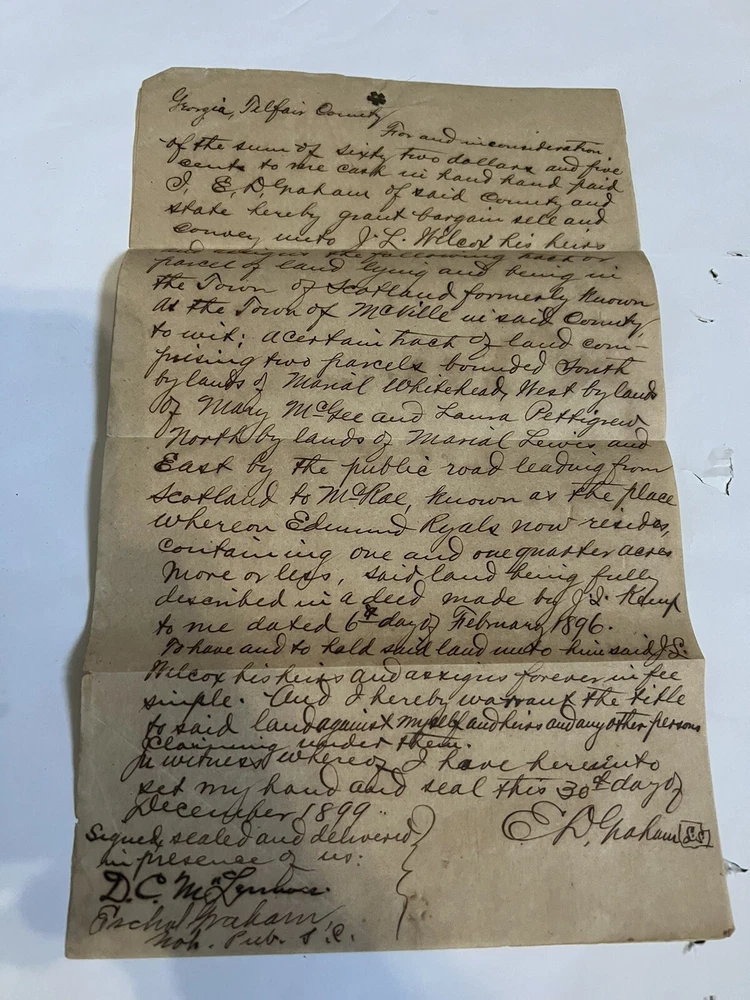 Georgia, Telfair County
For and in consideration
of the sum of sixty two dollars and five
cents to me cash in hand hand paid
I, E. D. Graham of said County and
state hereby grant bargain sell and
convey unto J. L. Wilcox his heirs
and assigns the following tract or
parcel of land lying and being in
the Town of Scotland formerly known
as the Town of McVille in said County,
to wit; a certain track of land com-
prising two parcels bounded South
by lands of Marial Whitehead, West by lands
of Mary McGee and Laura Pettigrew
North by lands of Marial Lewis and
East by the public road leading from
Scotland to McRae, known as the place
whereon Edmund Ryals now resides,
containing one and one quarter acres
more or less, said land being fully
described in a deed made by J. L. Kemp
to me dated 6th day of February 1896.
To have and to hold said land unto him said J. L.
Wilcox his heirs and assigns forever in fee
simple. And I hereby warrant the title
to said land against myself and heirs and any other persons
claiming under them.
In witness whereof I have hereunto
set my hand and seal this 30th day of
December 1899.
E. D. Graham L.S.
Signed, sealed and delivered
in presence of us:
D. C. 
Graham,
Not. Pub. T. C.